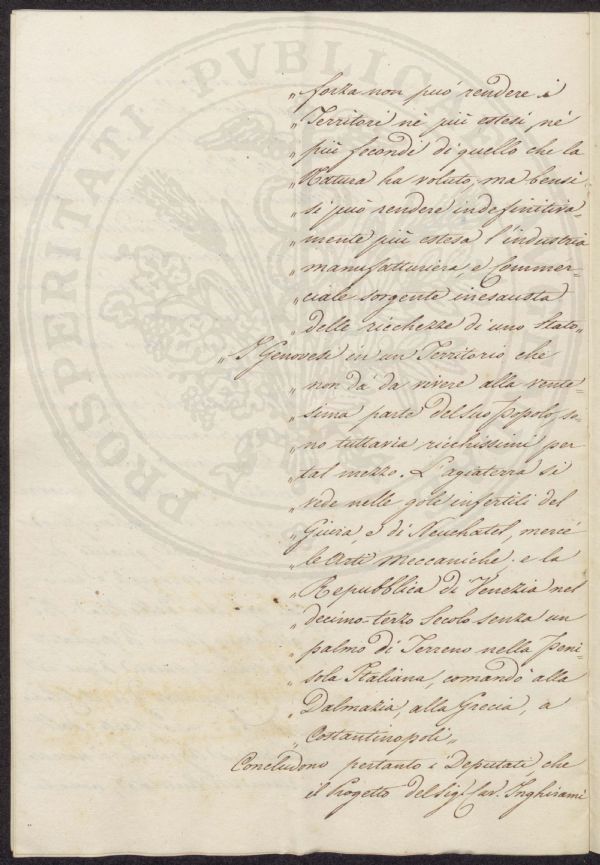 PROSPERITATI PVBLICAE
„ forza non puó rendere i
„ Territori nè più estesi, nè
„ più fecondi di quello che la
„ Natura ha voluto, ma bensì
„ si può rendere indefinitiva-
„ mente più estesa l'industria
„ manufatturiera e Commer-
„ ciale sorgente inesausta
„ delle ricchezze di uno Stato„
„ I Genovesi in un Territorio che
„ non dà da vivere alla vente-
„ sima parte del suo Popolo, so-
„ no tuttavia ricchissimi per
„ tal mezzo. L'agiatezza si
„ vede nelle gole infertili del
„ Giura, e di Neuchatel, mercè
„ le Arti Meccaniche. e la
„ Repubblica di Venezia nel
„ decimo-terzo Secolo senza un
„ palmo di Terreno nella Peni-
„ sola Italiana, comandò alla
„ Dalmazia, alla Grecia, a
„ Costantinopoli„
Concludono pertanto i Deputati che
il Progetto del Sig. Cav. Inghirami